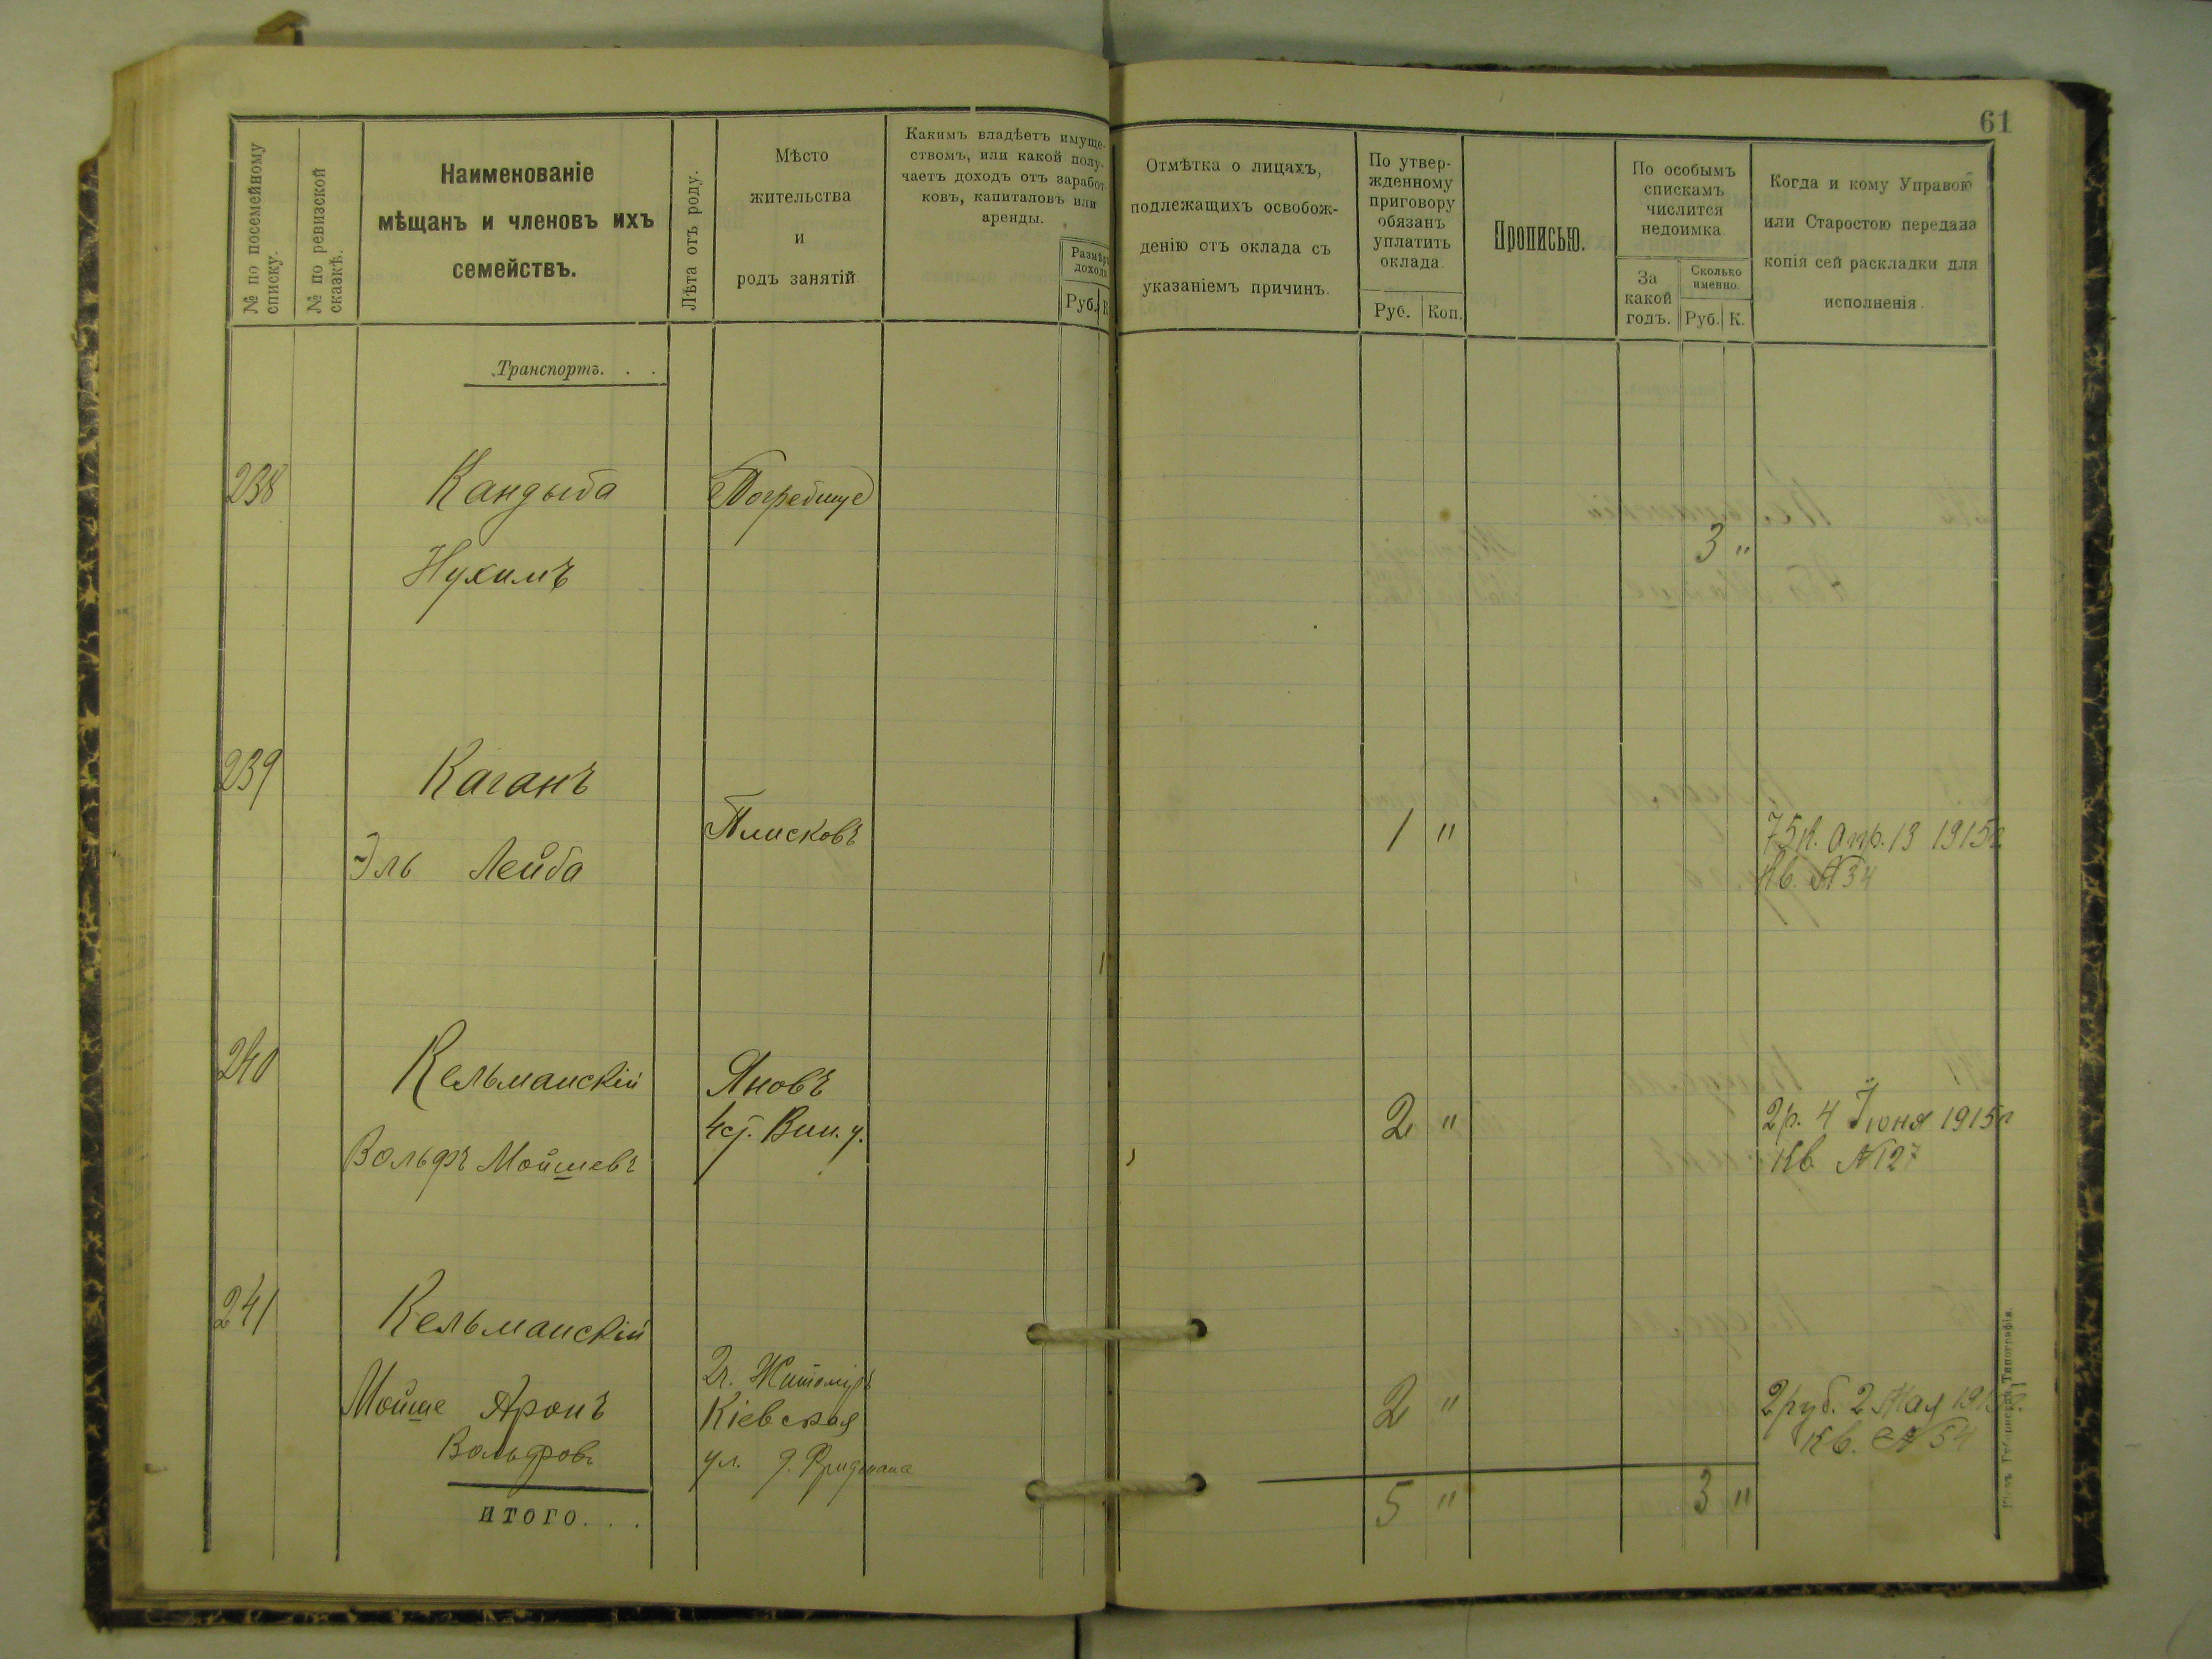 61
№ по посемейному
списку.
№ по ревизской
сказкѣ.
Наименованіе
мѣщанъ и членовъ ихъ
семействъ.
Лѣта отъ роду.
Мѣсто
жительства
и
родъ занятій.
Какимъ владѣетъ имуще-
ствомъ, или какой полу-
чаетъ доходъ отъ заработ-
ковъ, капиталовъ или
аренды.
Размѣръ
дохода
Руб. К
Отмѣтка о лицахъ,
подлежащихъ освобож-
денію отъ оклада съ
указаніемъ причинъ.
По утвер-
жденному
приговору
обязанъ
уплатить
оклада.
Руб. Коп.
Прописью.
По особымъ
спискамъ
числится
недоимка.
За
какой
годъ.
Сколько
именно.
Руб. К.
Когда и кому Управою
или Старостою передана
копія сей раскладки для
исполненія.
Транспортъ. . .
238 Кандыба Погребище
3 "
Нухимъ
239 Каганъ
Плисковъ 1 " 75 к. Апр. 13 1915 г
Эль Лейба Кв. № 34
240 Кельманскій Яновъ
2 " 2 р. 4 Іюня 1915 г
Вин. у.
Вольфъ Мойшевъ Кв. № 127
241 Кельманскій
г. Житоміръ
Мойше Аронъ Кіевская 2 " 2 руб. 2 Мая
Вольфовъ Кв. № 54
ул. д. Фридмана
итого. . . 5 " 3 "
Типографія.